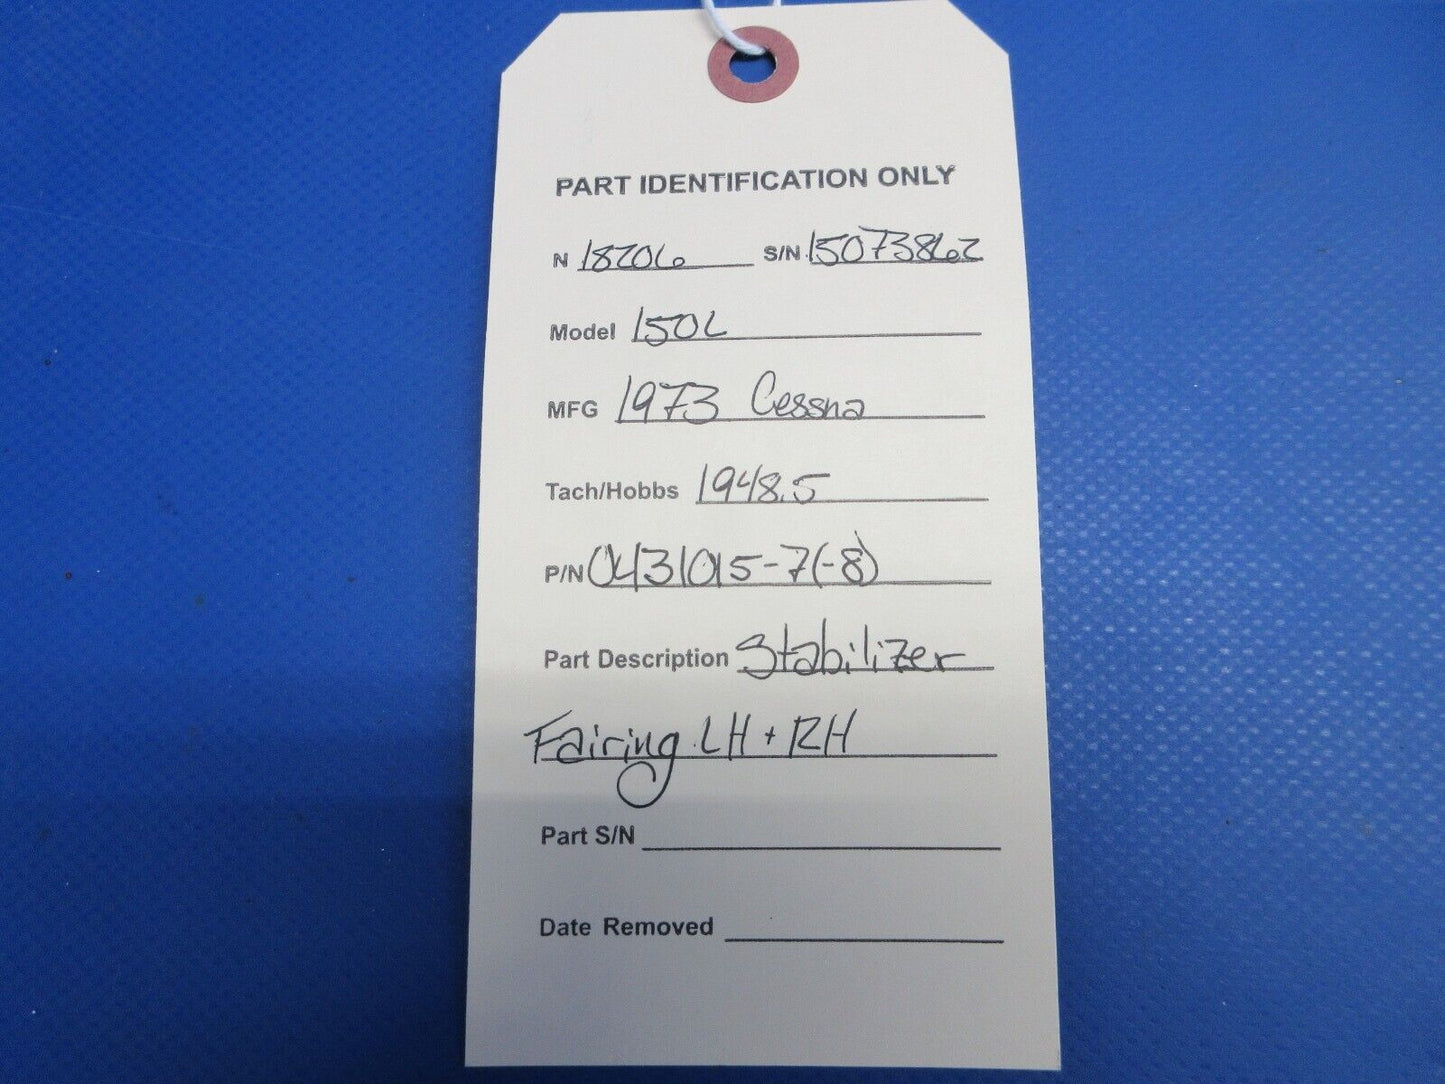 PART IDENTIFICATION ONLY
N 18206 S/N 15073862
Model 150L
MFG 1973 Cessna
Tach/Hobbs 1948.5
P/N 0431015-7(-8)
Part Description Stabilizer
Fairing LH + RH
Part S/N
Date Removed